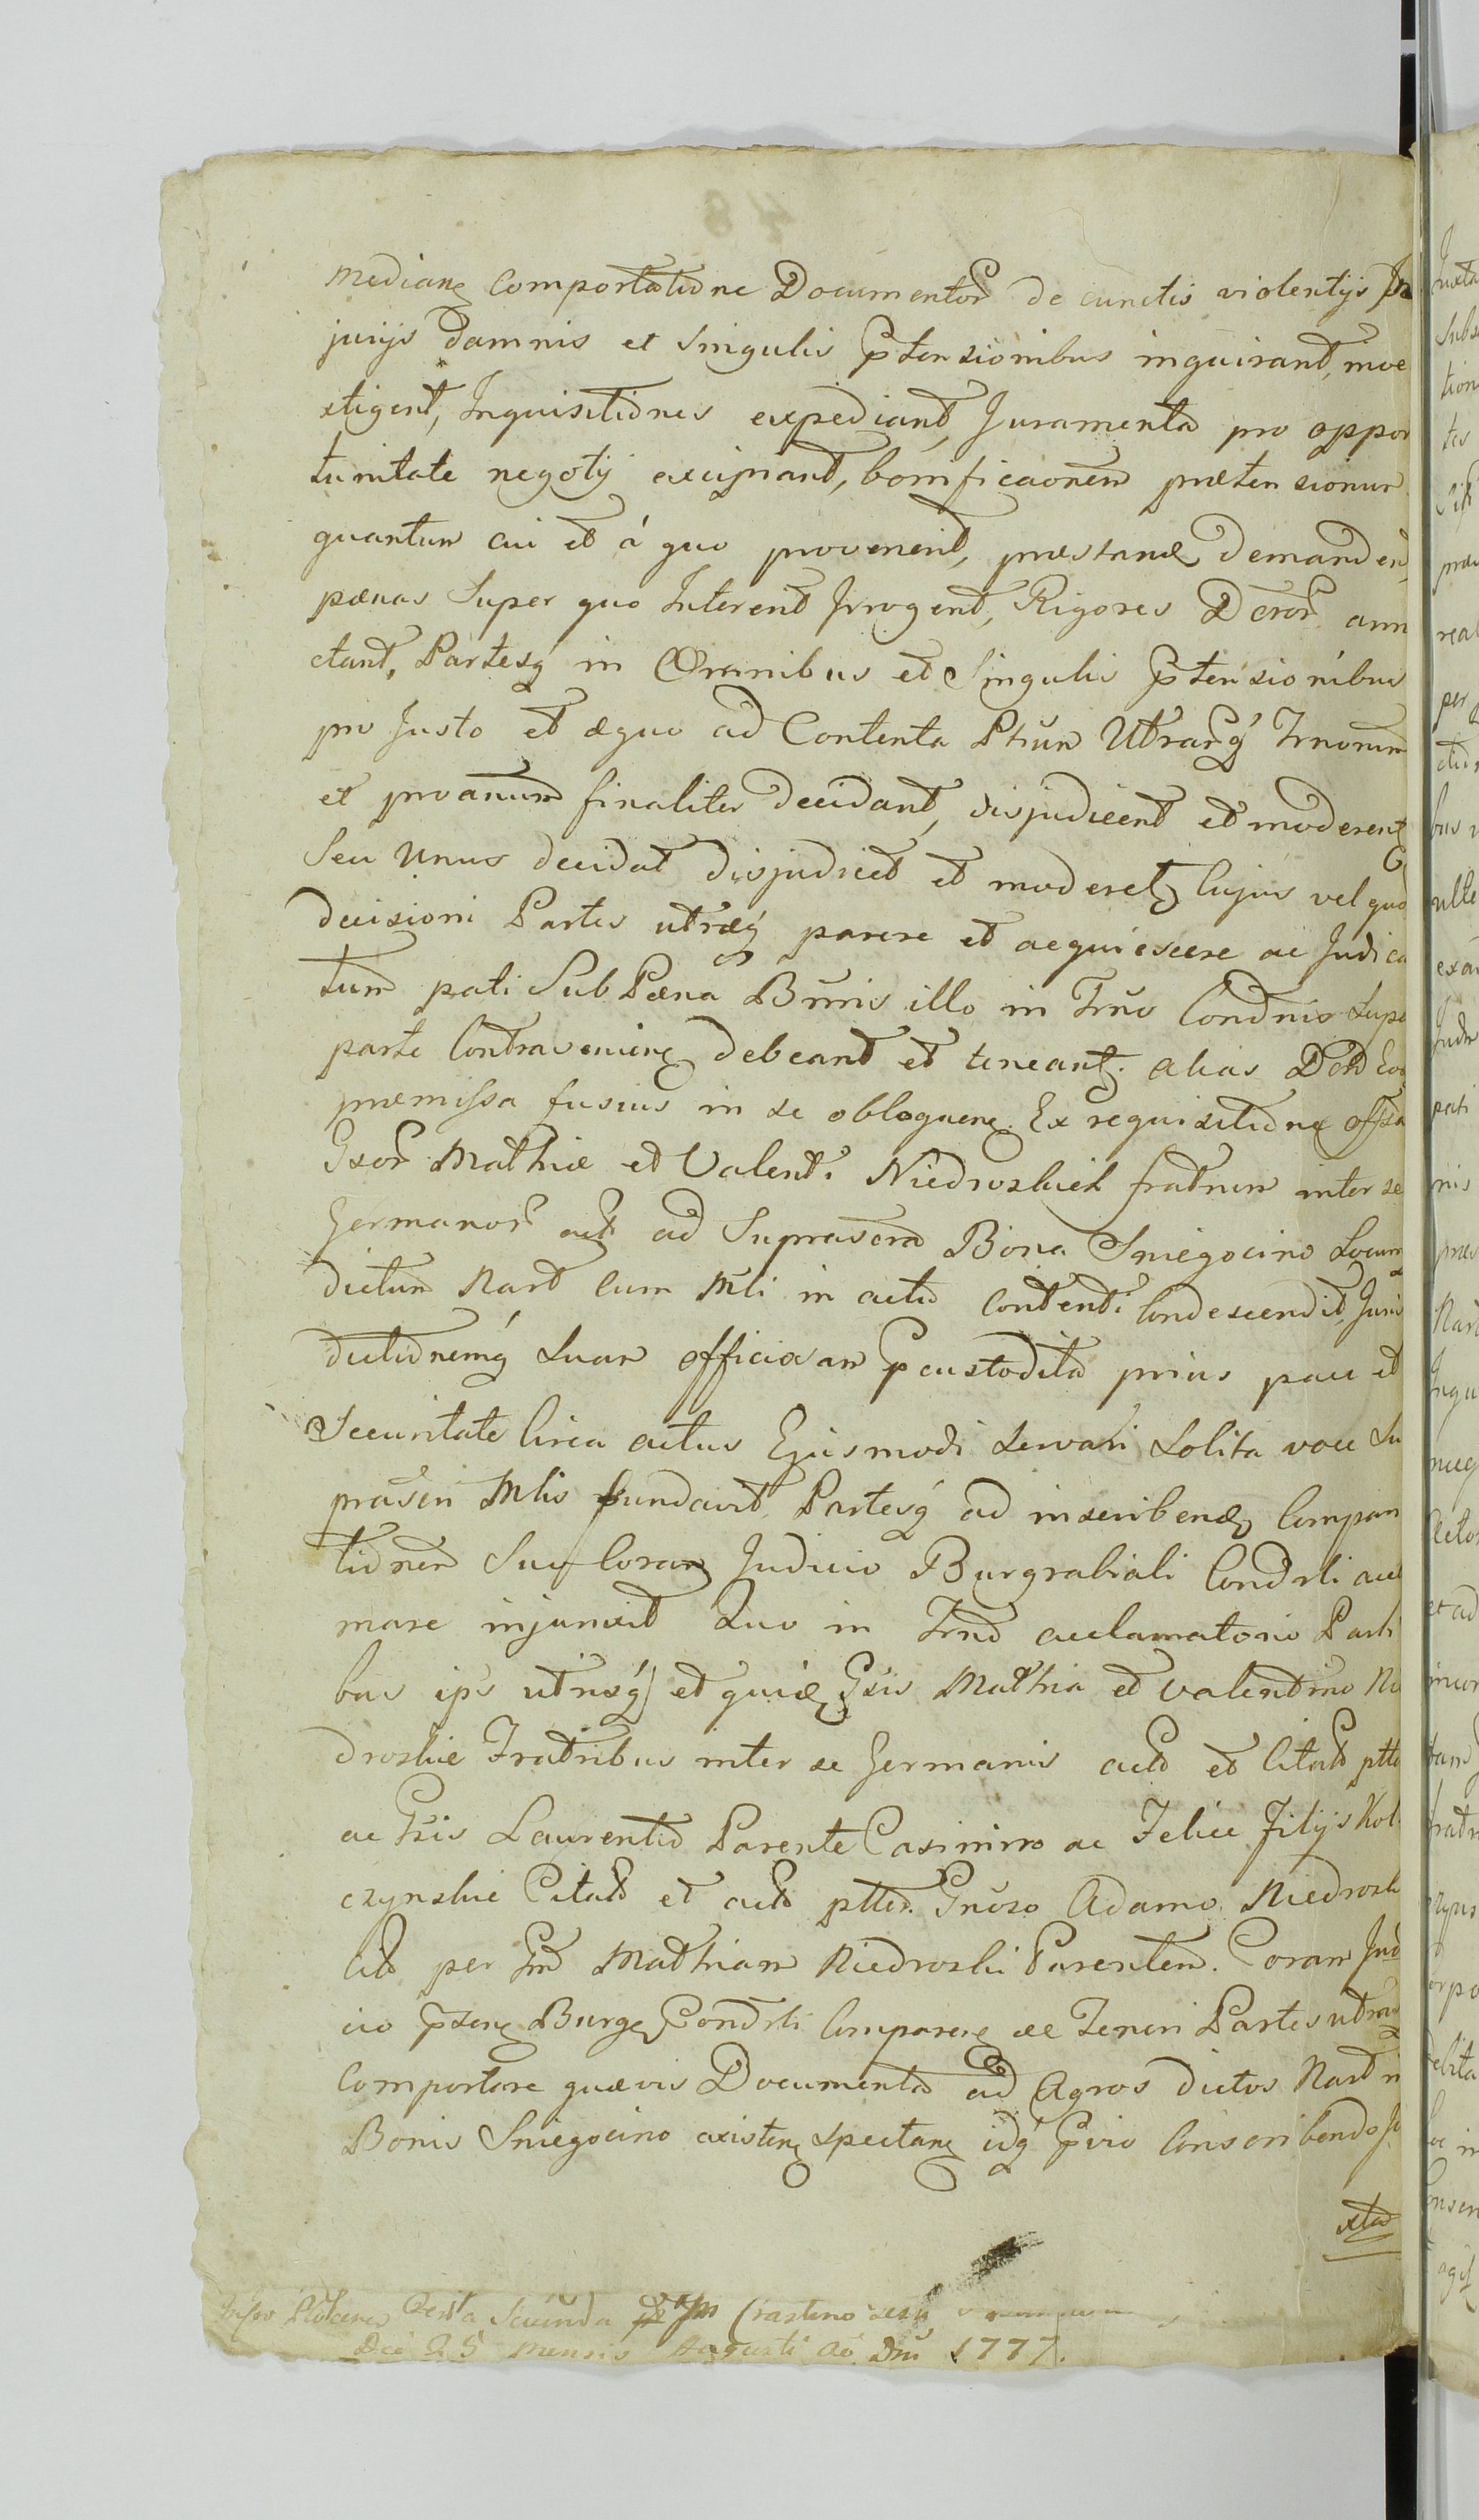 median comportatione Documentor de cunctis violentijs In
jurijs damnis et singulis Ptensionibus inquirant, inve
stigent, Inquisitiones expediant, Juramenta pro oppor
tunitate negotij excipiant, bonificaonem prætensionum
quantum cui et á quo provenerit, præstand demandent,
pænas super quo Intererit Irrogent, Rigores Dcror ann
ctant, Partesq in Omnibus et Singulis Ptensionibus
pro Justo et æquo ad Contenta Ptium Utrarq Trnorum
et pro anum finaliter decidant, disjudicent et moderent
Seu Unus decidat disjudicet et moderet Cujus vel quo
decisioni Partes utræq parere et acquiescere ac Judica
tum pati Sub Pæna Bnnis illo in Trno Condnis Supe
parte Contravenien debeant et teneant. alias Dcrt
præmissa fusius in se obloquen. Ex requisitione
Gsor Mathiæ et Valenti Niedroskich fratrum inter se
Germanor act ad Suprascra Bona Sniegocino Locum
dictum Nart cum Mli in actu contenti Condescendit, Juris
dictionemq Suam officiosam Pcustodita prius pace et
Securitate Circa actus Ejusmodi servari Solita voce Su
prascri Mlis fundavit, Partesq ad inscribend Compari
tionem Suo Coram Judicio Burgrabiali Condrli accl
mare injunxit Quo in Trno acclamatorio Parti
bus ips utrisq et quid Gsis Mathia et Valentino Nie
droskie Fratribus inter se Germanis actb et Citatb ptto
ac Gsis Laurentio Parente Casimiro ac Felice Filijs Kol
czynskie Citatb et actb ptto. Gnoso Adamo Niedrosk
Citb per Gm Mathiam Niedroski Parentem. Coram Jud
cio psen Burg Condrli Comparen ac Teneri Partes utras
Comportare quævis Documenta ad Agros dictos Nart in
Bonis Sniegocino existen spectan idq Pvio Conscribendo Ju
xta
Crastino
Die 25 mensis Augusti Ao Dni 1777.